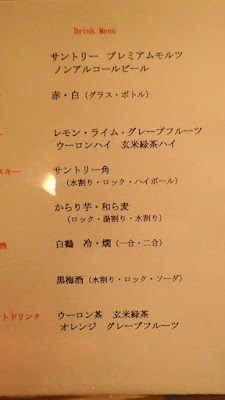 Drink Menu
サントリー プレミアムモルツ
ノンアルコールビール
赤・白（グラス・ボトル）
レモン・ライム・グレープフルーツ
ウーロンハイ 玄米緑茶ハイ
スキー サントリー角
（水割り・ロック・ハイボール）
からり芋・和ら麦
（ロック・湯割り・水割り）
酒 白鶴 冷・燗（一合・二合）
黒梅酒（水割り・ロック・ソーダ）
トドリンク ウーロン茶 玄米緑茶
オレンジ グレープフルーツ